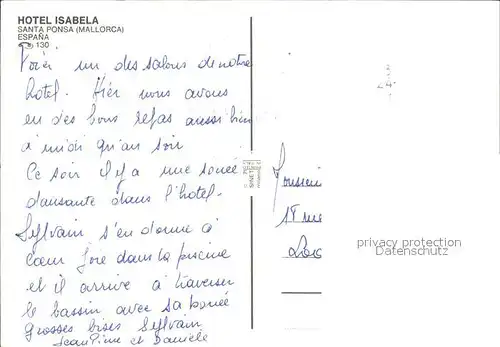 HOTEL ISABELA
SANTA PONSA (MALLORCA)
ESPAÑA
130
Voici un des salons de notre
hotel. Hier nous avons
eu des bons repas aussi bien
à midi qu'au soir
Ce soir il y a une soirée
dansante dans l'hotel.
Sylvain s'en donne à
cœur joie dans la piscine
et il arrive à traverser
le bassin avec sa bouée
grosses bises Sylvain
et Danièle
18 rue
privacy protection
Datenschutz